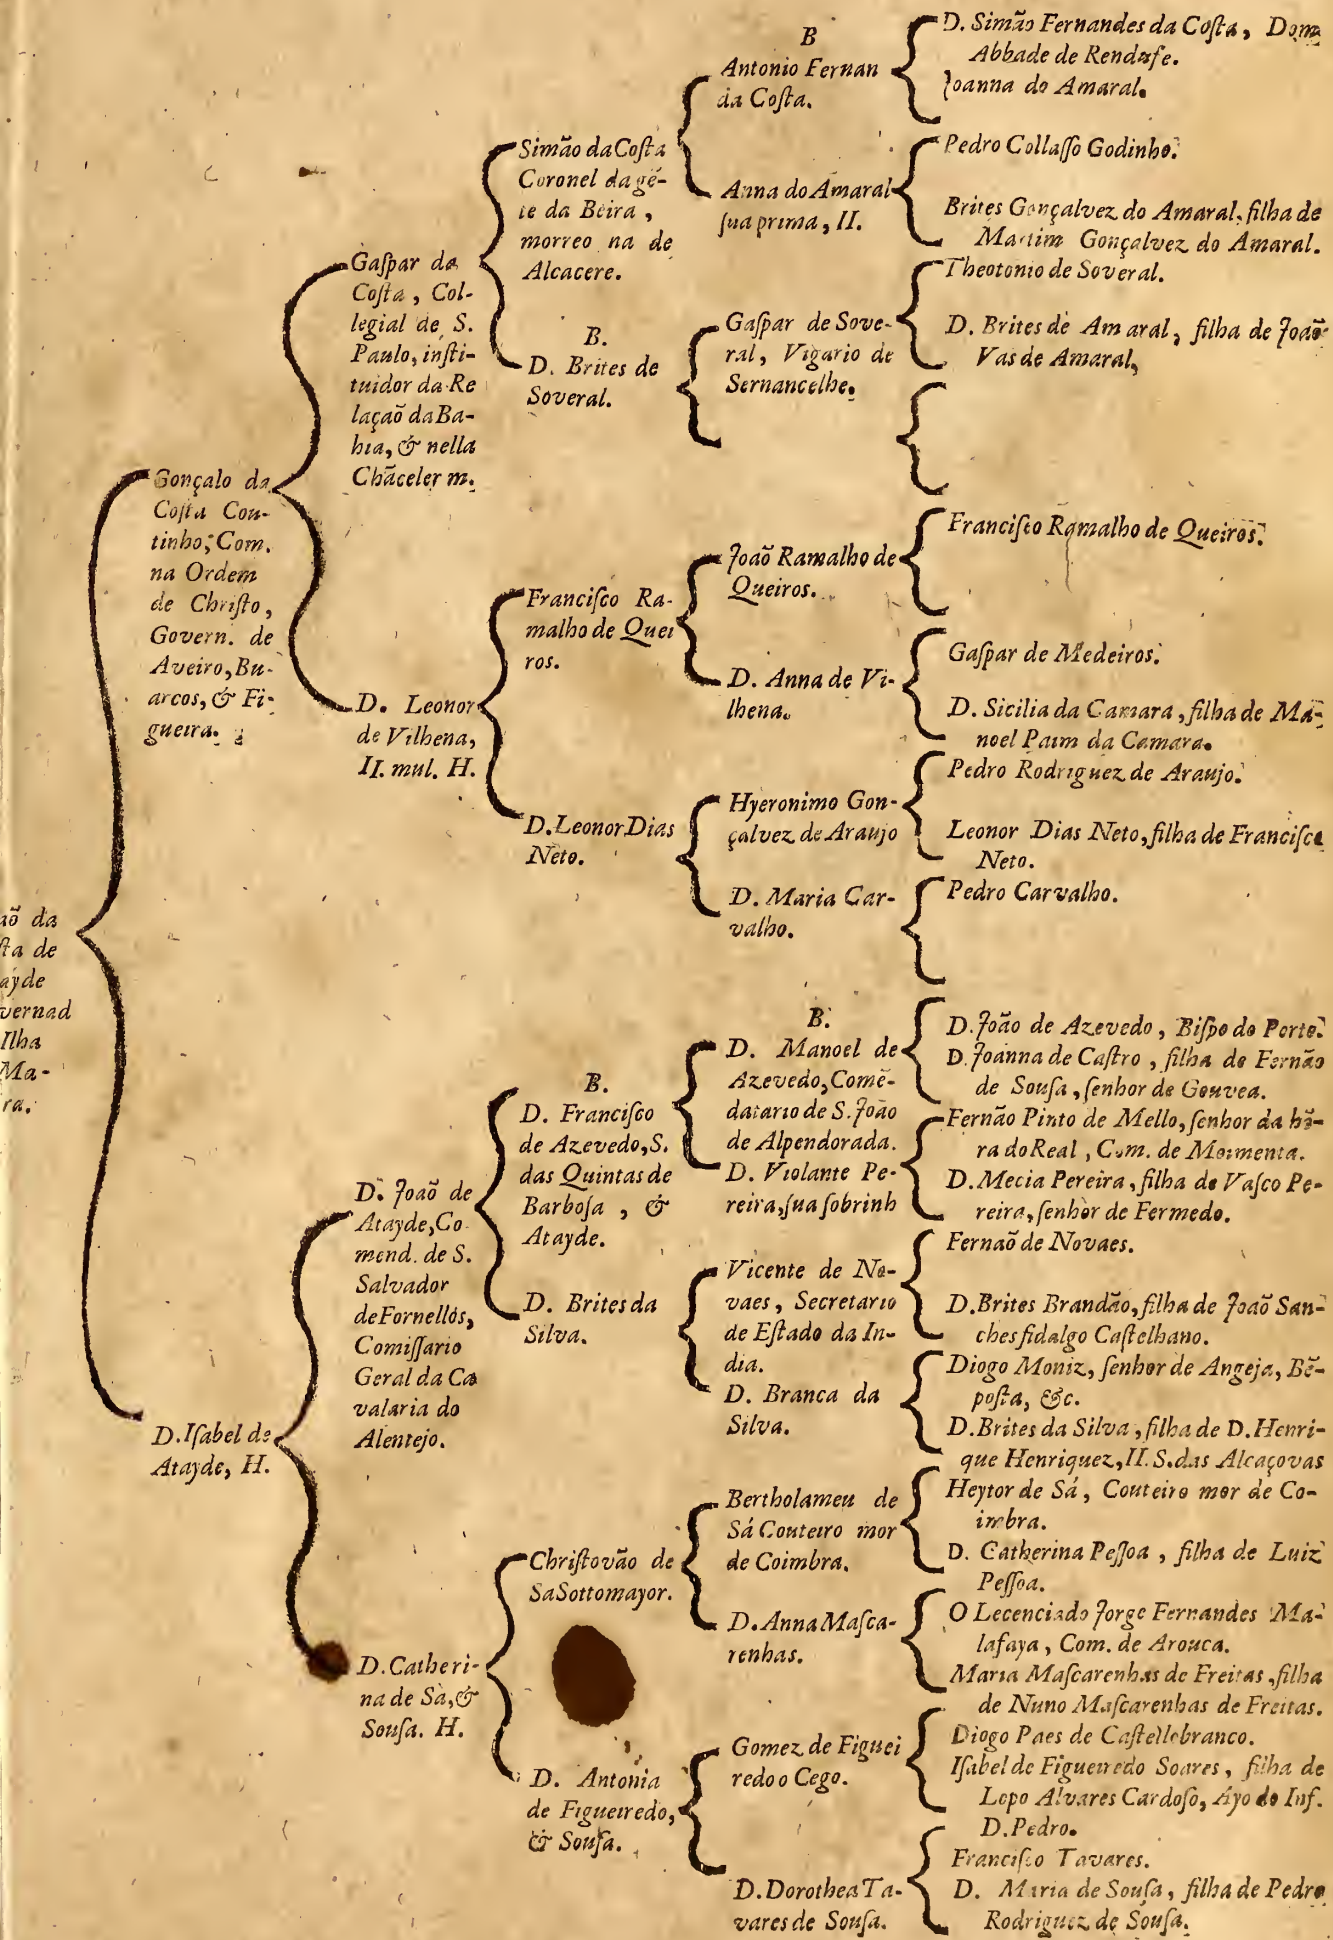 aõ da
ſta de
ayde
vernad
Ilha
Ma-
ra.
Gonçalo da
Coſta Cou-
tinho, Com.
na Ordem
de Chriſto,
Govern. de
Aveiro, Bu-
arcos, & Fi-
gueira.
D. Iſabel de
Atayde, H.
Gaſpar da
Coſta, Col-
legial de S.
Paulo, inſti-
tuidor da Re
laçaõ da Ba-
hia, & nella
Chãceler m.
D. Leonor
de Vilhena,
II. mul. H.
D. Joaõ de
Atayde, Co
mend. de S.
Salvador
de Fornellos,
Comiſſario
Geral da Ca
valaria do
Alentejo.
D. Catheri-
na de Sà, &
Souſa. H.
Simão da Coſta
Coronel da gé-
te da Beira,
morreo na de
Alcacere.
B.
D. Brites de
Soveral.
Franciſco Ra-
malho de Quei
ros.
D. Leonor Dias
Neto.
B.
D. Franciſco
de Azevedo, S.
das Quintas de
Barboſa, &
Atayde.
D. Brites da
Silva.
Chriſtovão de
Sa Sottomayor.
D. Antonia
de Figueiredo,
& Souſa.
B
Antonio Fernan
da Coſta.
Anna do Amaral
ſua prima, II.
Gaſpar de Sove-
ral, Vigario de
Sernancelhe.
Joaõ Ramalho de
Queiros.
D. Anna de Vi-
lhena.
Hyeronimo Gon-
çalvez de Araujo
D. Maria Car-
valho.
B.
D. Manoel de
Azevedo, Comẽ-
datario de S. Joaõ
de Alpendorada.
D. Violante Pe-
reira, ſua ſobrinh
Vicente de No-
vaes, Secretario
de Eſtado da In-
dia.
D. Branca da
Silva.
Bertholameu de
Sá Couteiro mor
de Coimbra.
D. Anna Maſca-
renhas.
Gomez de Figuei
redo o Cego.
D. Dorothea Ta-
vares de Souſa.
D. Simão Fernandes da Coſta, Dom
Abbade de Rendufe.
Joanna do Amaral.
Pedro Collaſſo Godinho.
Brites Gonçalvez do Amaral, filha de
Martim Gonçalvez do Amaral.
Theotonio de Soveral.
D. Brites de Amaral, filha de Joaõ
Vas de Amaral,
Franciſco Ramalho de Queiros.
Gaſpar de Medeiros.
D. Sicilia da Camara, filha de Ma-
noel Paim da Camara.
Pedro Rodriguez de Araujo.
Leonor Dias Neto, filha de Franciſco
Neto.
Pedro Carvalho.
D. João de Azevedo, Biſpo do Porto.
D. Joanna de Caſtro, filha de Fernão
de Souſa, ſenhor de Gouvea.
Fernão Pinto de Mello, ſenhor da hõ-
ra do Real, Com. de Moimenta.
D. Mecia Pereira, filha de Vaſco Pe-
reira, ſenhor de Fermedo.
Fernaõ de Novaes.
D. Brites Brandão, filha de Joaõ San-
ches fidalgo Caſtelhano.
Diogo Moniz, ſenhor de Angeja, Bẽ-
poſta, &c.
D. Brites da Silva, filha de D. Henri-
que Henriquez, II. S. das Alcaçovas
Heytor de Sá, Couteiro mor de Co-
imbra.
D. Catherina Peſſoa, filha de Luiz
Peſſoa.
O Lecenciado Jorge Fernandes Ma-
lafaya, Com. de Arouca.
Maria Maſcarenhas de Freitas, filha
de Nuno Maſcarenhas de Freitas.
Diogo Paes de Caſtellobranco.
Iſabel de Figueiredo Soares, filha de
Lopo Alvares Cardoſo, Ayo do Inf.
D. Pedro.
Franciſco Tavares.
D. Maria de Souſa, filha de Pedro
Rodriguez de Souſa.